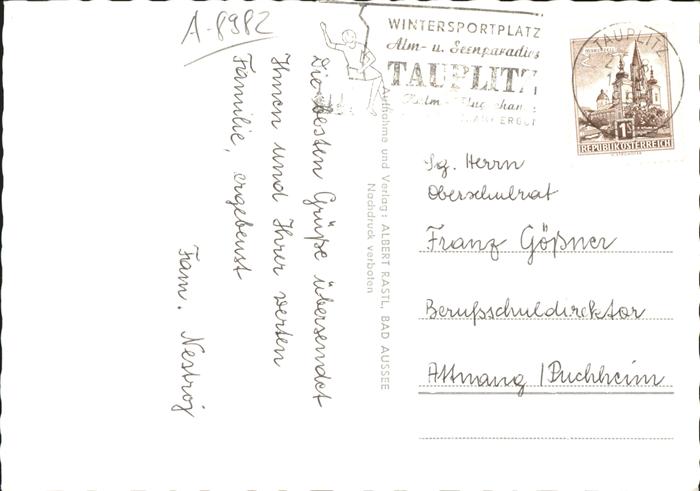 A-8982
WINTERSPORTPLATZ
Alm- u. Seenparadies
TAUPLITZ
TAUPLITZ
1S
REPUBLIK ÖSTERREICH
Die besten Grüße übersendet
Ihnen und Ihrer werten
Familie, ergebenst
Fam. Nestroj
Aufnahme und Verlag: ALBERT RASTL, BAD AUSSEE
Nachdruck verboten
Sg. Herrn
Oberschulrat
Franz Gößner
Berufsschuldirektor
Attnang / Puchheim